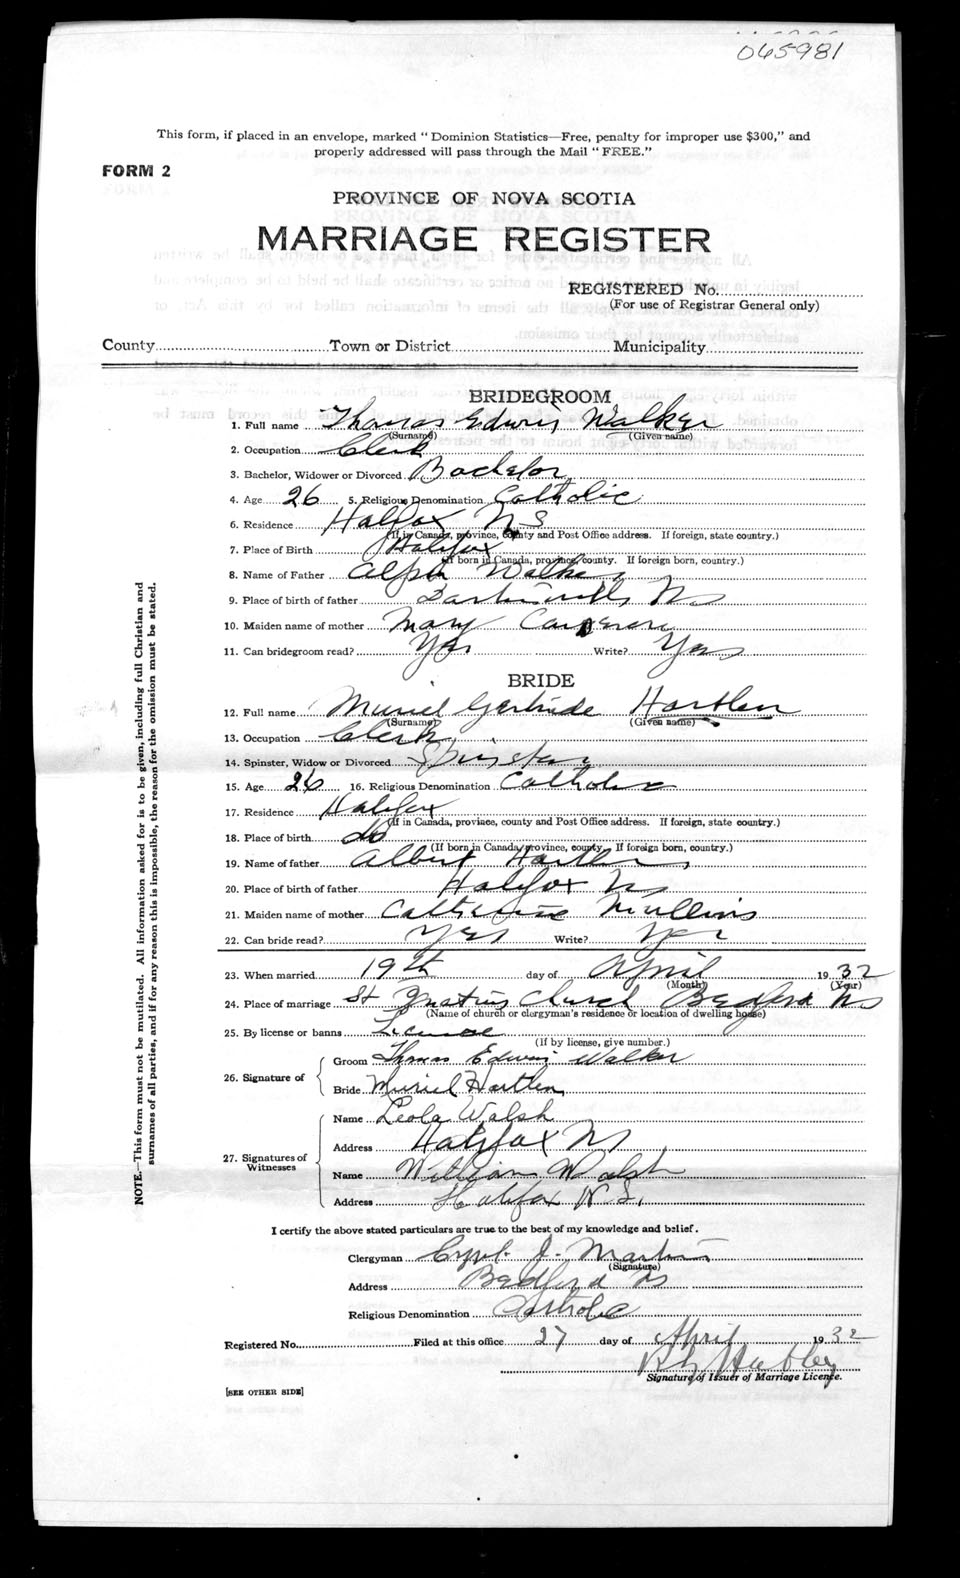 065981
This form, if placed in an envelope, marked "Dominion Statistics—Free, penalty for improper use $300," and
properly addressed will pass through the Mail "FREE."
FORM 2
PROVINCE OF NOVA SCOTIA
MARRIAGE REGISTER
REGISTERED No.
(For use of Registrar General only)
County Town or District Municipality
BRIDEGROOM
1. Full name Thomas Edwin Walker
(Surname) (Given name)
2. Occupation Clerk
3. Bachelor, Widower or Divorced Bachelor
4. Age 26 5. Religious Denomination Catholic
6. Residence Halifax NS
(If in Canada, province, county and Post Office address. If foreign, state country.)
7. Place of Birth Halifax
(If born in Canada, province, county. If foreign born, country.)
8. Name of Father Walker
9. Place of birth of father NS
10. Maiden name of mother Mary Cameron
11. Can bridegroom read? Yes Write? Yes
BRIDE
12. Full name Muriel Gertrude Hartlen
(Surname) (Given name)
13. Occupation Clerk
14. Spinster, Widow or Divorced Spinster
15. Age 26 16. Religious Denomination Catholic
17. Residence Halifax
(If in Canada, province, county and Post Office address. If foreign, state country.)
18. Place of birth do
(If born in Canada, province, county. If foreign born, country.)
19. Name of father Albert Hartlen
20. Place of birth of father Halifax NS
21. Maiden name of mother Catherine Mullins
22. Can bride read? Yes Write? Yes
23. When married 19th day of April 1932
(Month) (Year)
24. Place of marriage St Ignatius Church Bedford NS
(Name of church or clergyman's residence or location of dwelling house)
25. By license or banns License
(If by license, give number.)
26. Signature of Groom Thomas Edwin Walker
Bride Muriel Hartlen
27. Signatures of Witnesses Name Leola Walsh
Address Halifax NS
Name William Walsh
Address Halifax N.S.
I certify the above stated particulars are true to the best of my knowledge and belief.
Clergyman Cyril J. Martin
(Signature)
Address Bedford NS
Religious Denomination Catholic
Registered No. Filed at this office 27 day of April 1932
Hubley
Signature of Issuer of Marriage License.
[SEE OTHER SIDE]
NOTE.—This form must not be mutilated. All information asked for is to be given, including full Christian and
surnames of all parties, and if for any reason this is impossible, the reason for the omission must be stated.